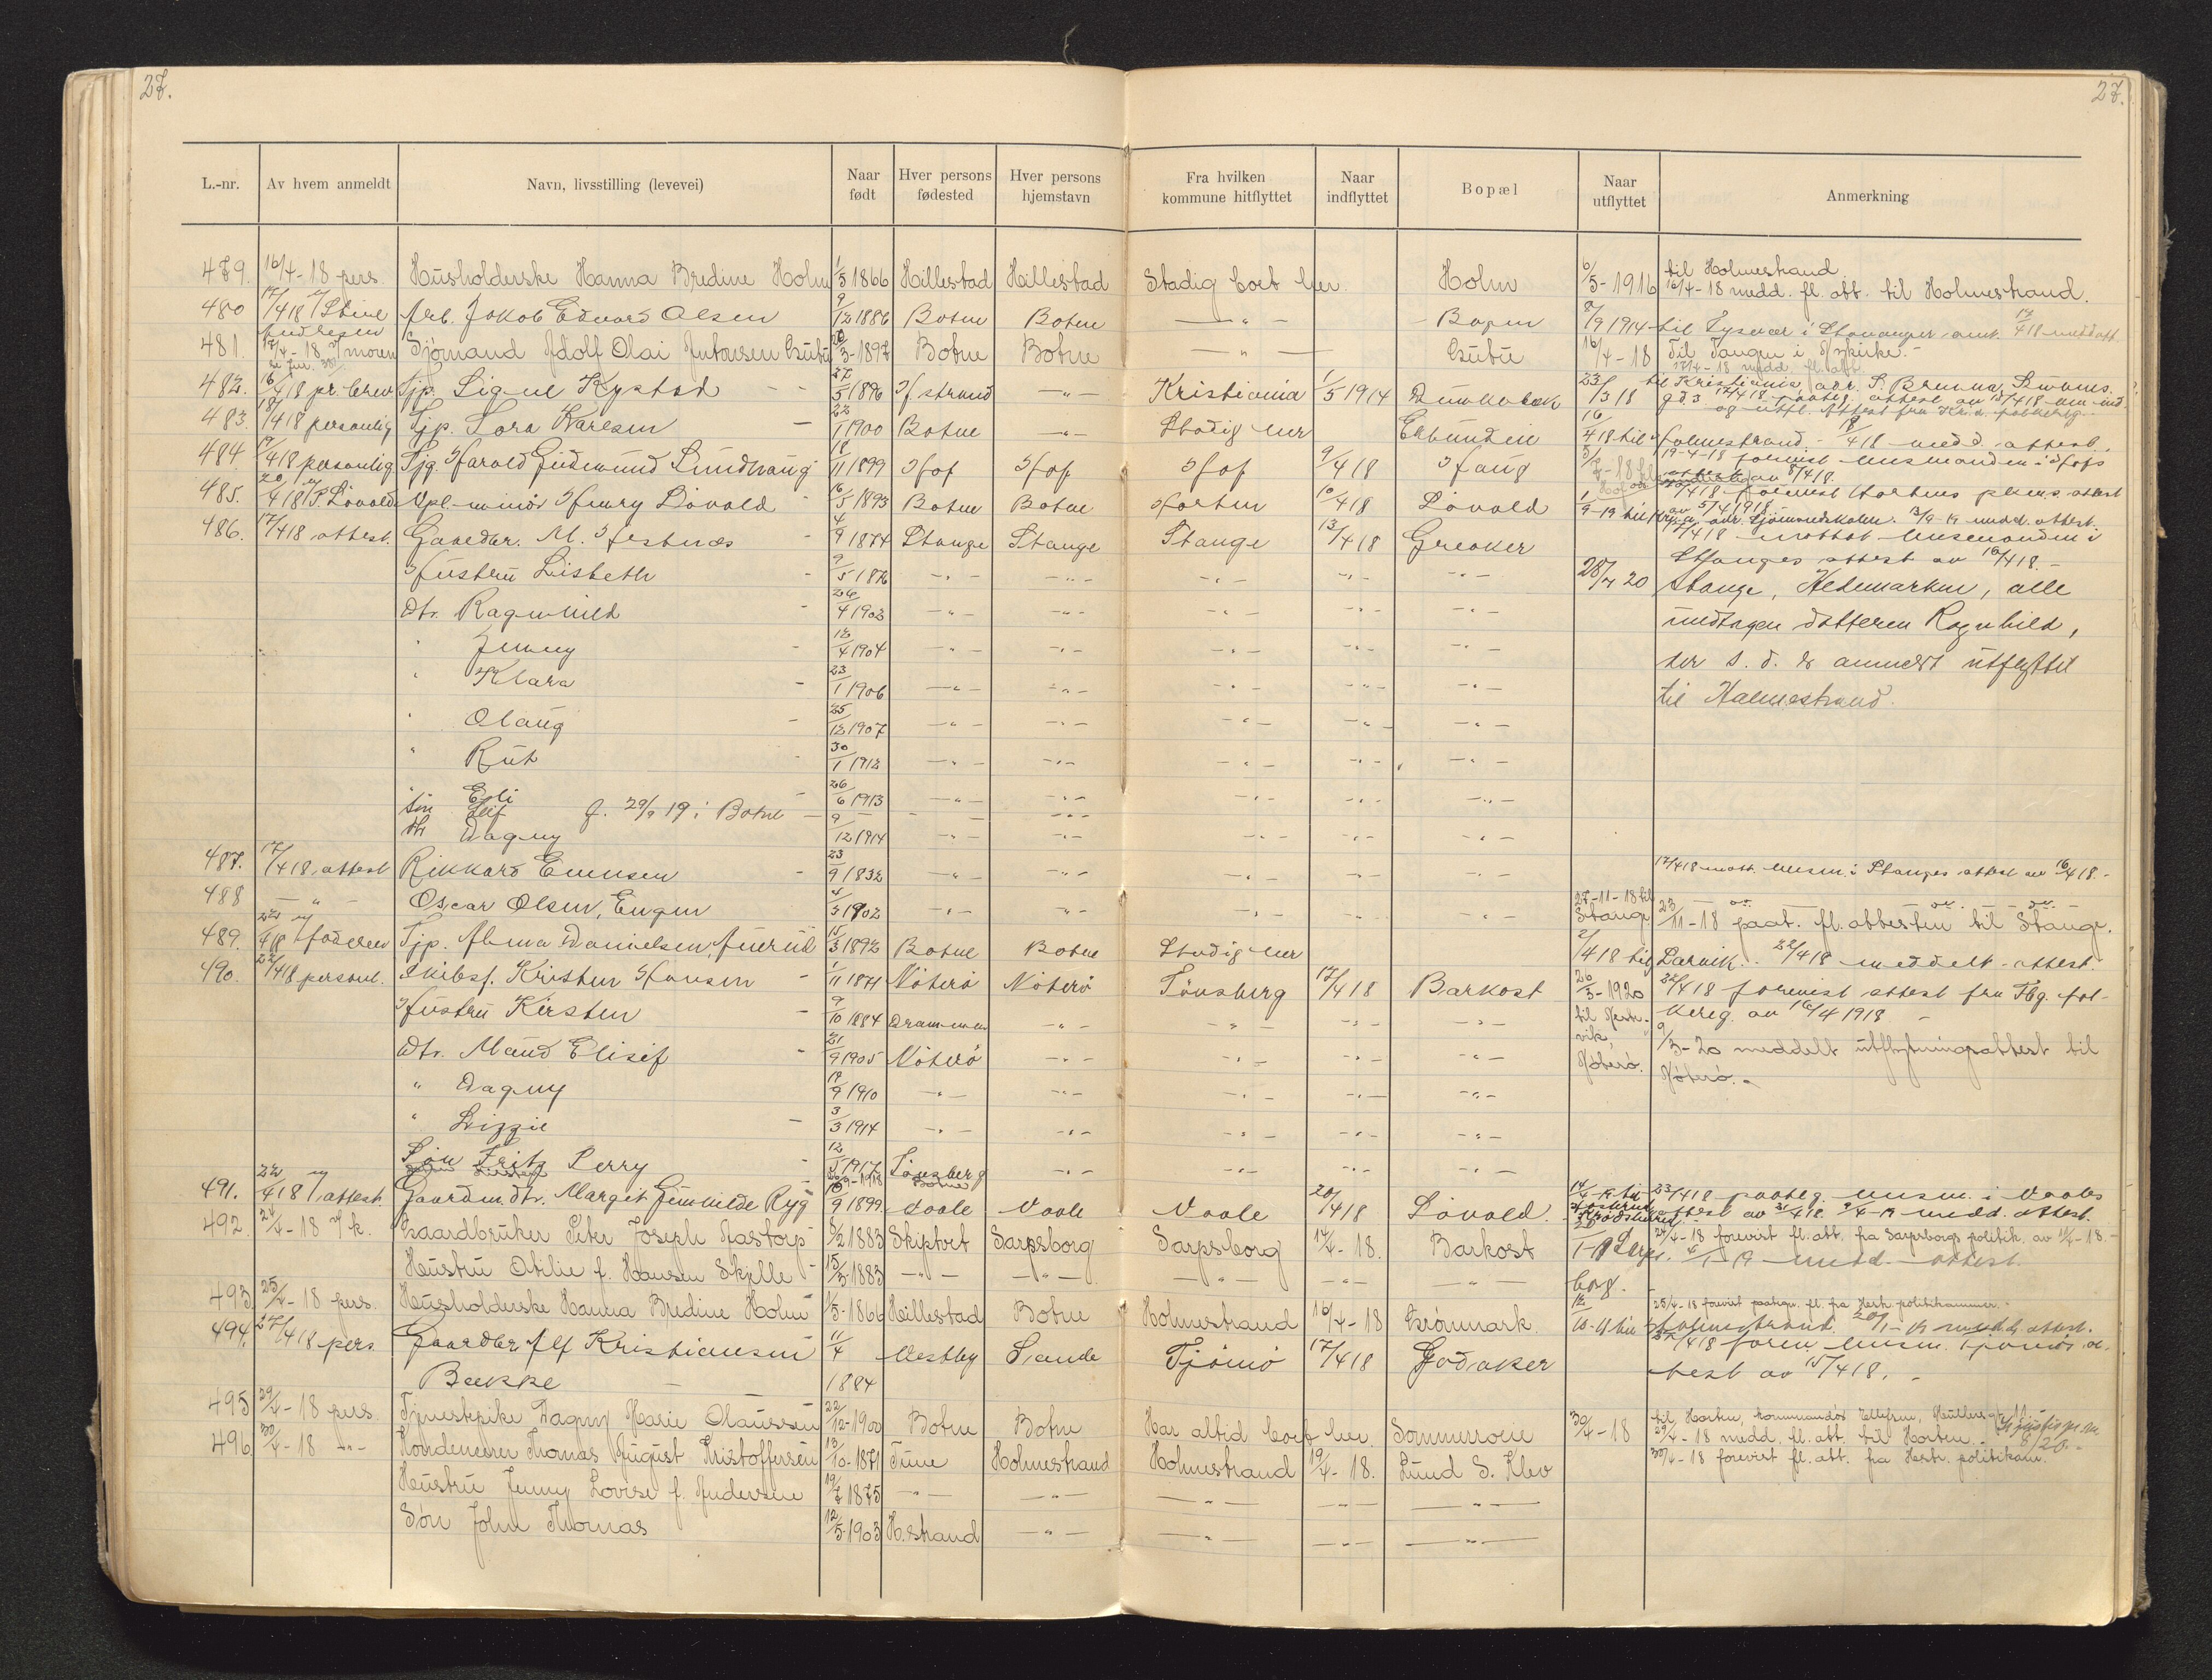 27.
27.
L.-nr. Av hvem anmeldt Navn, livsstilling (levevei) Naar født Hver persons fødested Hver persons hjemstavn Fra hvilken kommune hitflyttet Naar indflyttet Bopæl Naar utflyttet Anmerkning
479. 16/4-18 pers. Husholderske Hanna Bredine Holm 1/5 1866 Hillestad Hillestad Stadig boet her. Holm 6/5-1916 til Holmestrand.
16/4-18 medd. fl. att. til Holmestrand.
480 17/418 Arb. Jakob Edvard Olsen 9/12 1886 Botne Botne —"— 9/9 1914 til Tysvær i Stavanger amt. 17/418 medd att.
481. 17/4-18 v/ moren Sjømand Adolf Olai Antonsen 3-1897 Botne Botne —"— 16/4-18 Til Tangen i
17/4-18 medd. fl. att.
482. 16/418 pr. brev Tjp. Signe Kystad 27/5 1896 Hstrand —"— Kristiania 1/5 1914 23/3 18 til Kristiania adr.
483. 18/418 personlig Tjp. Lora Karlsen 22/1 1900 Botne —"— Stadig her 16/418 til Holmestrand. 18/418 medd. attest.
484 19/418 personlig Tjg. Harald Gudmund Lundhaug 18/11 1899 Hof Hof Hof 9/418 Haug 19-4-18 forevist lensmanden i Hofs
attest av 8/418.
485. 20/418 v/P. Løvold Henry Løvold 16/5 1893 Botne Botne Horten 10/418 Løvold forevist Hortens attest
av 5/4 1918. adr. Sjømandsskolen. medd. attest.
486. 17/418 attest. Gaardbr. M. Hestnæs 4/9 1874 Stange Stange Stange 13/418 Greaker 17/418 mottat lensmanden i
Stanges attest av 16/418.-
Hustru Lisbeth 9/5 1876 —"— —"— —"— —"— —"— 28/4 20 Stange, Hedemarken, alle
Dtr. Ragnhild 26/4 1902 —"— —"— —"— —"— —"— undtagen datteren Ragnhild,
" Jenny 12/4 1904 —"— —"— —"— —"— —"— der s. d. er anmeldt utflyttet
" Klara 23/1 1906 —"— —"— —"— —"— —"— til Holmestrand.
" Olaug 25/12 1907 —"— —"— —"— —"— —"—
" Rut 30/1 1912 —"— —"— —"— —"— —"—
" Edi 26/6 1913 —"— —"— —"— —"— —"—
Søn Leif f. 29/9 19 i Botne —"—
Dtr Dagny 9/12 1914 —"— —"— —"— —"— —"—
487. 17/418 attest Rikkard Evensen 23/9 1832 —"— —"— —"— —"— —"— 17/418 mott. lensm. i Stanges attest av 16/418.-
488 —"— Oscar Olsen, Engen 4/3 1902 —"— —"— —"— —"— —"— 27-11-18 til Stange. —do.— —do.—
23/11-18 paat. fl. attesten til Stange.
489. 22/418 v/ faderen Tjp. Alma Danielsen, 15/3 1892 Botne Botne Stadig her 2/418 til Larvik.- 22/418 meddelt attest.
490. 22/418 personl. Skibsf. Kristen Hansen 1/11 1871 Nøterø Nøterø Tønsberg 17/418 Barkost 20/3-1920 22/418 forevist attest fra Tbg. fol-
kereg. av 16/4 1918
Hustru Kirsten 9/10 1884 Drammen —"— —"— —"— —"—
Dtr. Maud Elisif 21/9 1905 Nøterø —"— —"— —"— —"— Nøterø. 9/3-20 meddelt utflytningsattest til
" Dagny 19/9 1910 —"— —"— —"— —"— —"— Nøterø.-
" Lizzie 3/3 1914 —"— —"— —"— —"— —"—
Søn Fritz Perry 12/5 1917 Tønsberg —"— —"— —"— —"—
491. 22/418 v/ attest. Gaardm. dtr. Margit Gunhilde Ryg 9 1899 Vaale Vaale Vaale 20/418 Løvold. 23/418 paateg. lensm. i Vaales
attest av medd. attest.
492. 24/4-18 Gaardbruker Peter Joseph Aastorp 5/2 1883 Skiptvet Sarpsborg Sarpsborg 14/4-18. Barkost 24/4-18 forevist fl. att. fra Sarpsborgs politik. av
Hustru Otilie f. Hansen Skjelle 15/3-1883 —"— —"— —"— —"— —"— borg. medd. attest.
493. 25/4-18 pers. Husholderske Hanna Bredine Holm 1/5-1866 Hillestad Botne Holmestrand 16/4-18 Grønmark 25/4-18 forevist paategn. fl. fra Hstr. politikammer.-
til Holmestrand. medd. attest.
494. 27/418 pers. Gaardbr Alf Kristiansen Bække 11/4 1884 Vestby Sande Tjømø 17/418 Godaker 27/418 forev. lensm. Tjømøs at-
test av 15/418.-
495. 29/4-18 pers. Tjenestepike Dagny Marie Olaussen 22/12-1900 Botne Botne Har altid boet her Sommerroen 30/4-18 til Horten,
29/4-18 medd. fl. att. til Horten.-
496. 30/4-18 —"— Kondenserer Thomas August Kristoffersen 13/10-1871 Tune Holmestrand Holmestrand 19/4-18. Lund S. Klev 30/4-18 forevist fl. att. fra Hestr. politikam.
Hustru Jenny Lovise f. Andersen 19/7 1875 —"— —"— —"— —"— —"—
Søn John Thomas 12/5-1903 H.strand —"— —"— —"— —"—